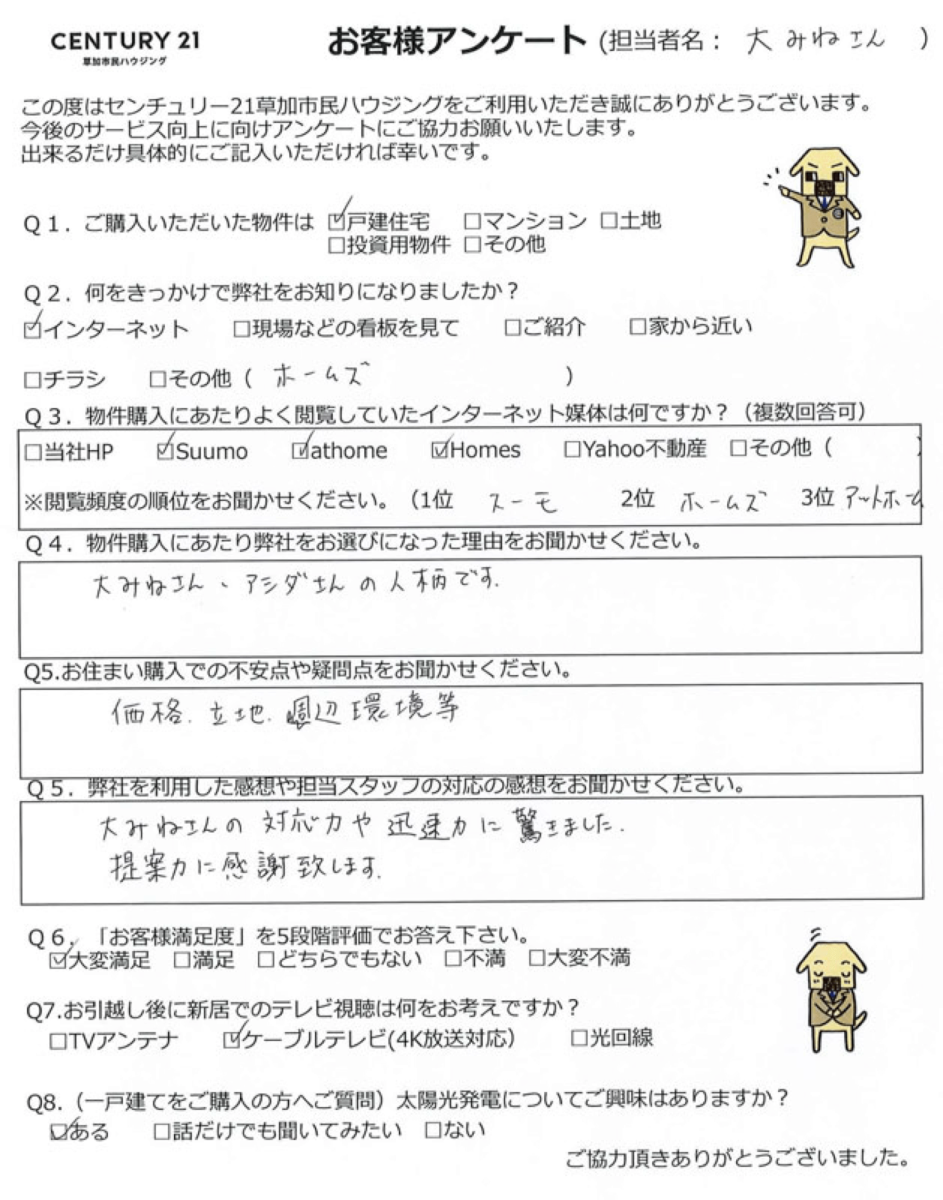 CENTURY 21
草加市民ハウジング
お客様アンケート (担当者名： 大みねさん )
この度はセンチュリー21草加市民ハウジングをご利用いただき誠にありがとうございます。
今後のサービス向上に向けアンケートにご協力お願いいたします。
出来るだけ具体的にご記入いただければ幸いです。
Ｑ１．ご購入いただいた物件は ☑戸建住宅 □マンション □土地
□投資用物件 □その他
Ｑ２．何をきっかけで弊社をお知りになりましたか？
☑インターネット □現場などの看板を見て □ご紹介 □家から近い
□チラシ □その他（ ホームズ ）
Ｑ３．物件購入にあたりよく閲覧していたインターネット媒体は何ですか？（複数回答可）
□当社HP ☑Suumo ☑athome ☑Homes □Yahoo不動産 □その他（ ）
※閲覧頻度の順位をお聞かせください。（1位 スーモ 2位 ホームズ 3位 アットホーム
Ｑ４．物件購入にあたり弊社をお選びになった理由をお聞かせください。
大みねさん、アシダさんの人柄です.
Q5.お住まい購入での不安点や疑問点をお聞かせください。
価格.立地.周辺環境等
Ｑ５．弊社を利用した感想や担当スタッフの対応の感想をお聞かせください。
大みねさんの対応力や迅速力に驚きました.
提案力に感謝致します.
Ｑ６．「お客様満足度」を5段階評価でお答え下さい。
☑大変満足 □満足 □どちらでもない □不満 □大変不満
Q7.お引越し後に新居でのテレビ視聴は何をお考えですか？
□TVアンテナ ☑ケーブルテレビ(4K放送対応） □光回線
Q8.（一戸建てをご購入の方へご質問）太陽光発電についてご興味はありますか？
☑ある □話だけでも聞いてみたい □ない
ご協力頂きありがとうございました。